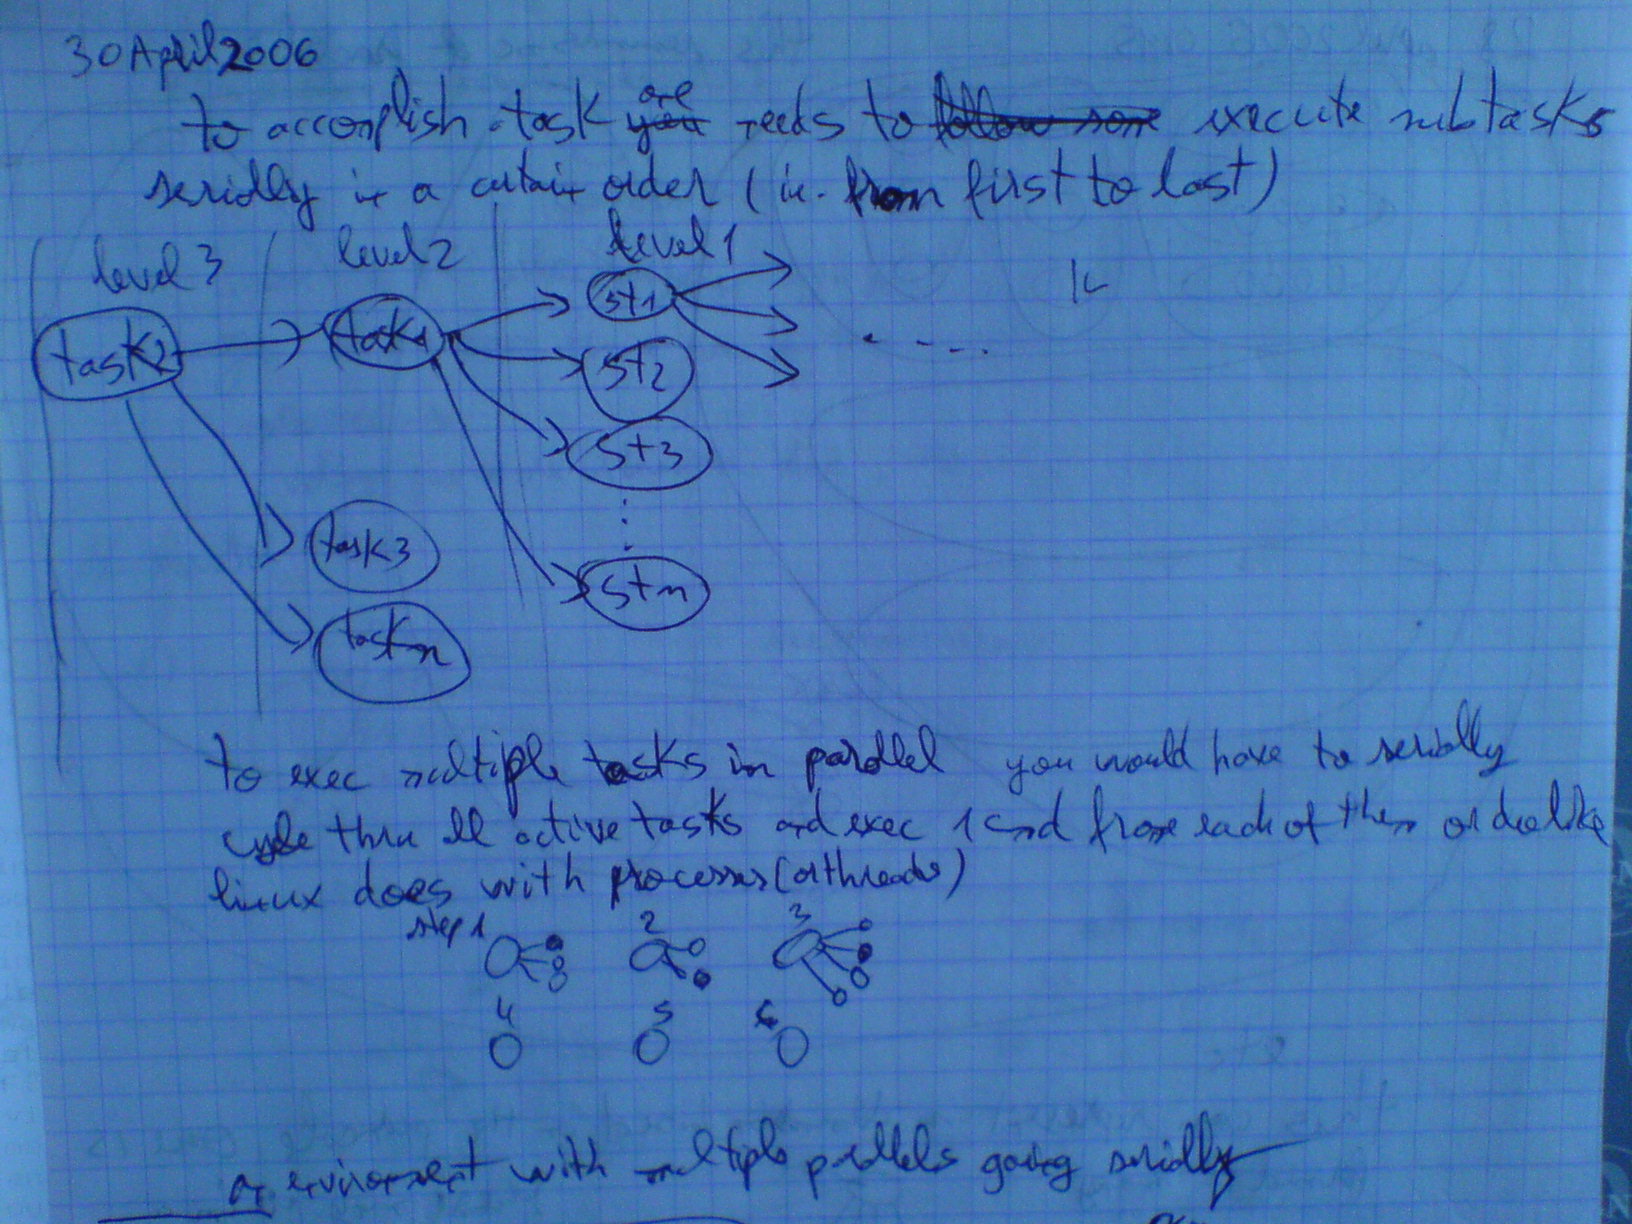 30 April 2006
to accomplish task one you needs to follow some execute subtasks
serially in a certain order (ie. from first to last)
level 3 level 2 level 1
task2 task1 st1
st2
st3
task3
stn
taskn
to exec multiple tasks in parallel you would have to serially
cycle thru all active tasks and exec 1 cmd from each of them or do like
linux does with processes (or threads)
step 1 2 3
4 5 6
an enviroment with multiple parallels going serially